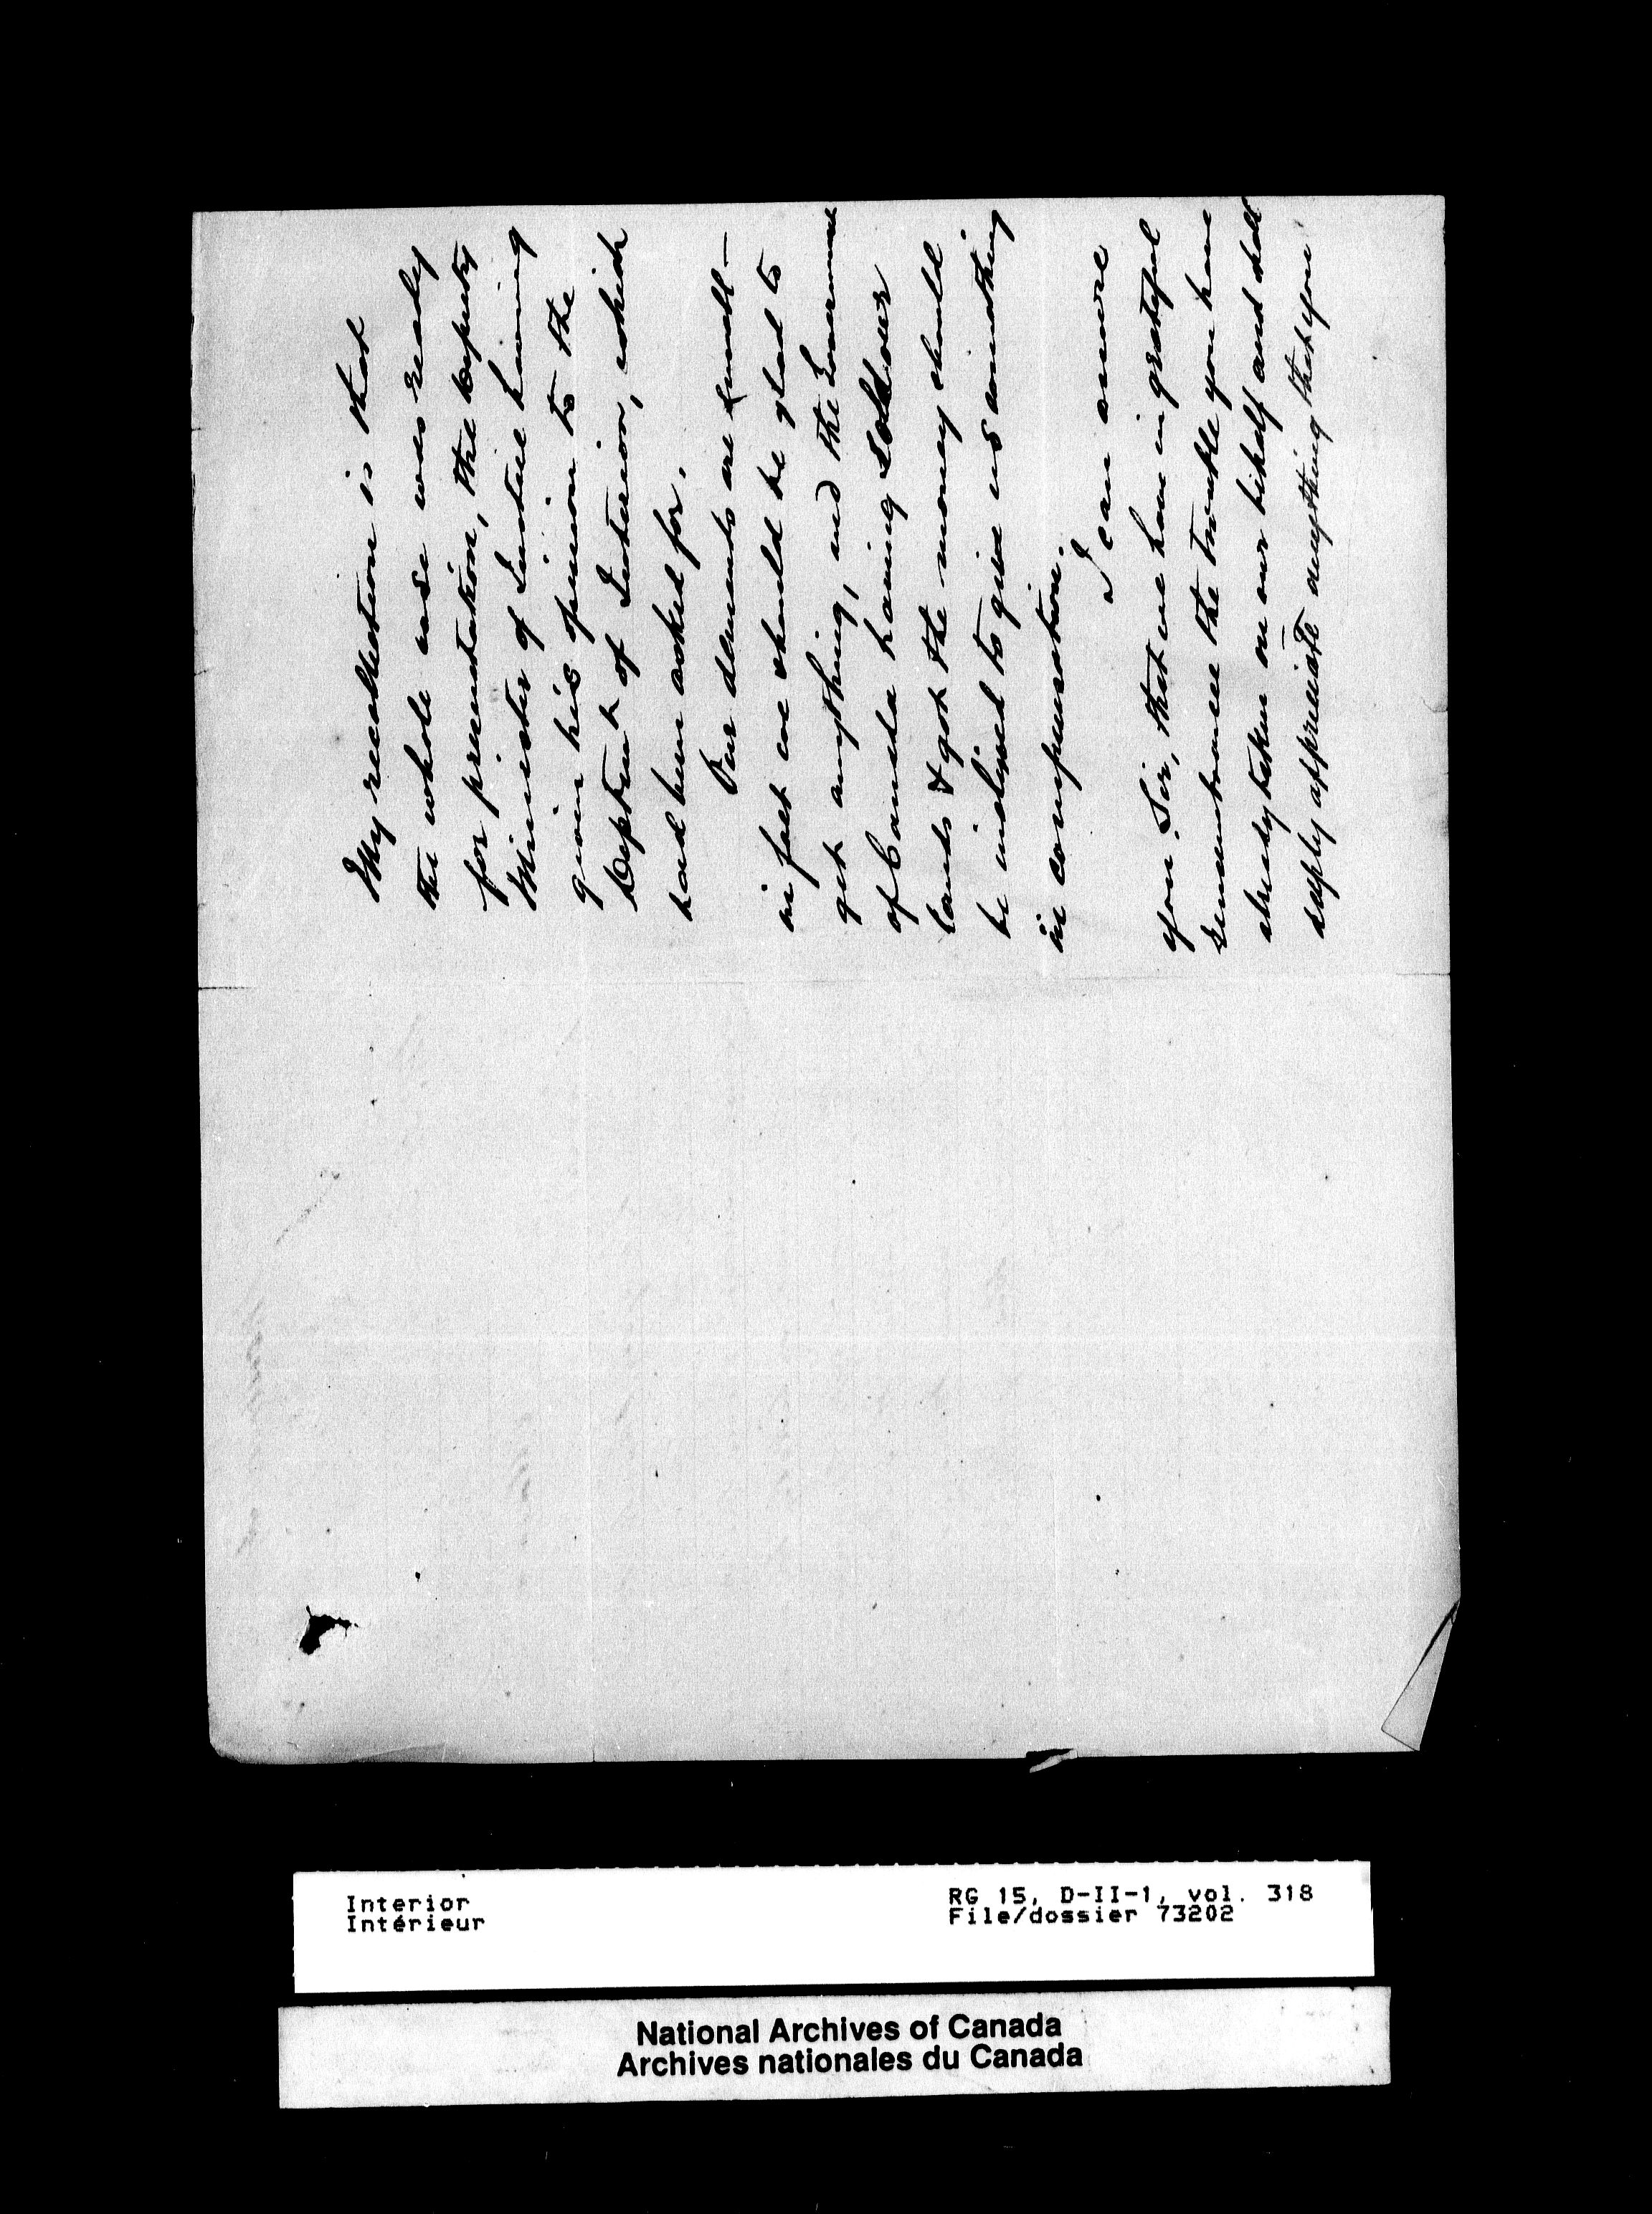 My recollection is that
the whole case was ready
for presentation, the Deputy
Minister of Justice having
given his opinion to the
Deptmt of Interior, which
had been asked for.
Our demands are small —
in fact we should be glad to
get anything, and the Government
of Canada having sold our
lands & got the money should
be inclined to give us something
in compensation.
I can assure
you, Sir, that we have in grateful
remembrance the trouble you have
already taken on our behalf and shall
deeply appreciate anything that you
Interior
Intérieur
RG 15, D-II-1, vol. 318
File/dossier 73202
National Archives of Canada
Archives nationales du Canada